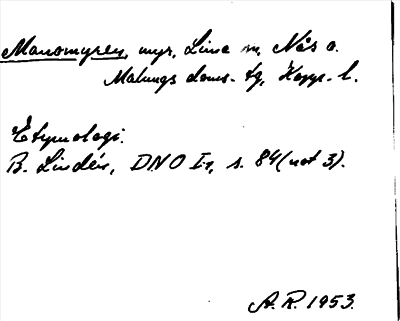 Manomyren, myr, Lima sn, Nås o.
Malungs doms. tg, Kopp. l.
Etymologi.
B. Lindén, DNO I:1, s. 84 (not 3).
A. R. 1953.